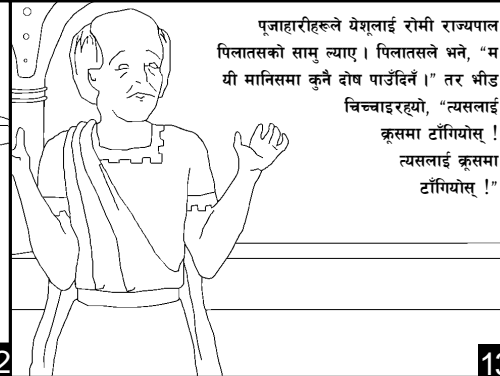 पूजाहारीहरूले येशूलाई रोमी राज्यपाल
पिलातसको सामु ल्याए । पिलातसले भने, “म
यी मानिसमा कुनै दोष पाउँदिनँ ।” तर भीड
चिच्चाइरह्यो, “त्यसलाई
क्रूसमा टाँगियोस् !
त्यसलाई क्रूसमा
टाँगियोस् !”
2
13